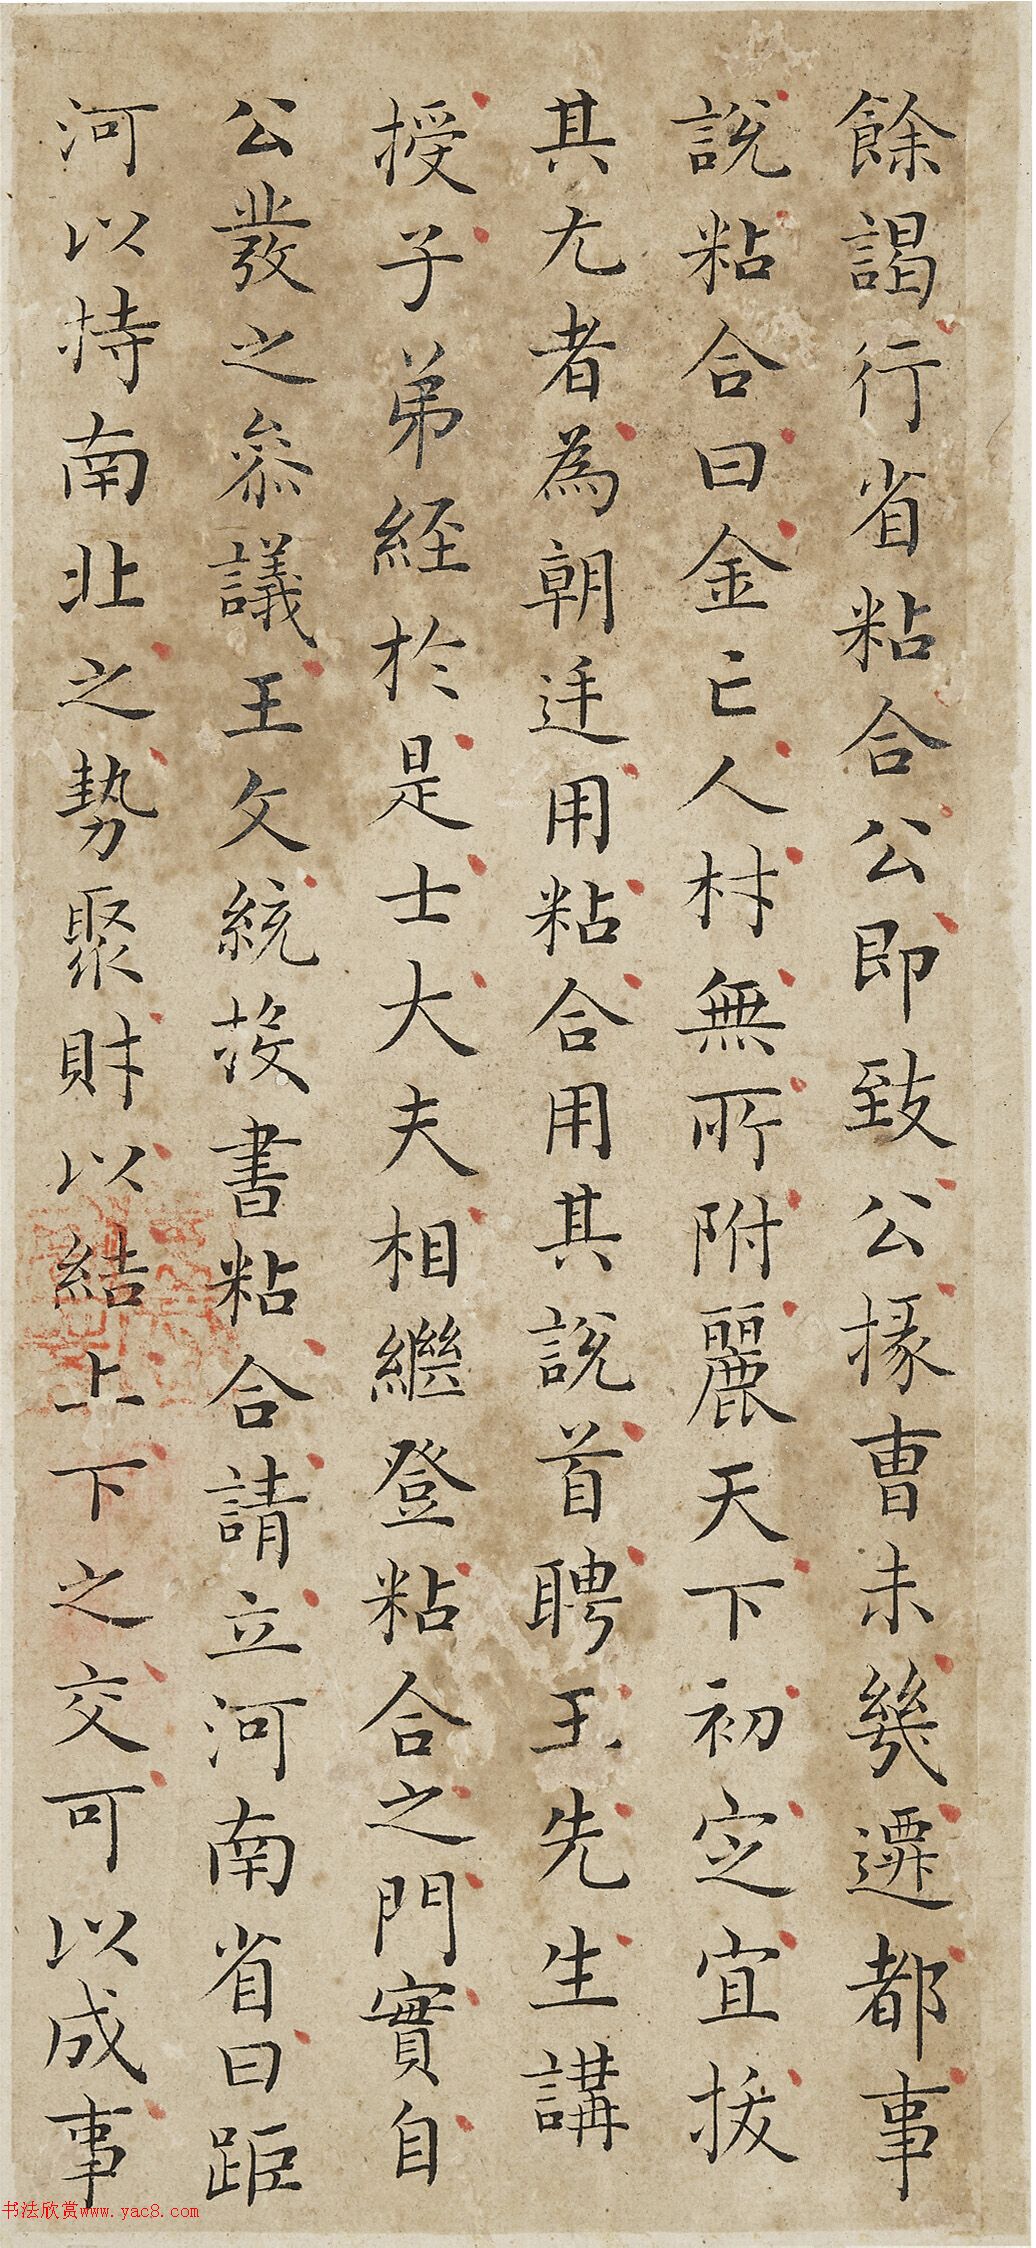 餘謁行省粘合公即致公掾曹未幾遷都事
說粘合曰金亡人材無所附麗天下初定宜拔
其尤者為朝廷用粘合用其說首聘王先生講
授子弟經於是士大夫相繼登粘合之門實自
公發之參議王文統投書粘合請立河南省曰距
河以持南北之勢聚財以結上下之交可以成事
书法欣赏www.yac8.com